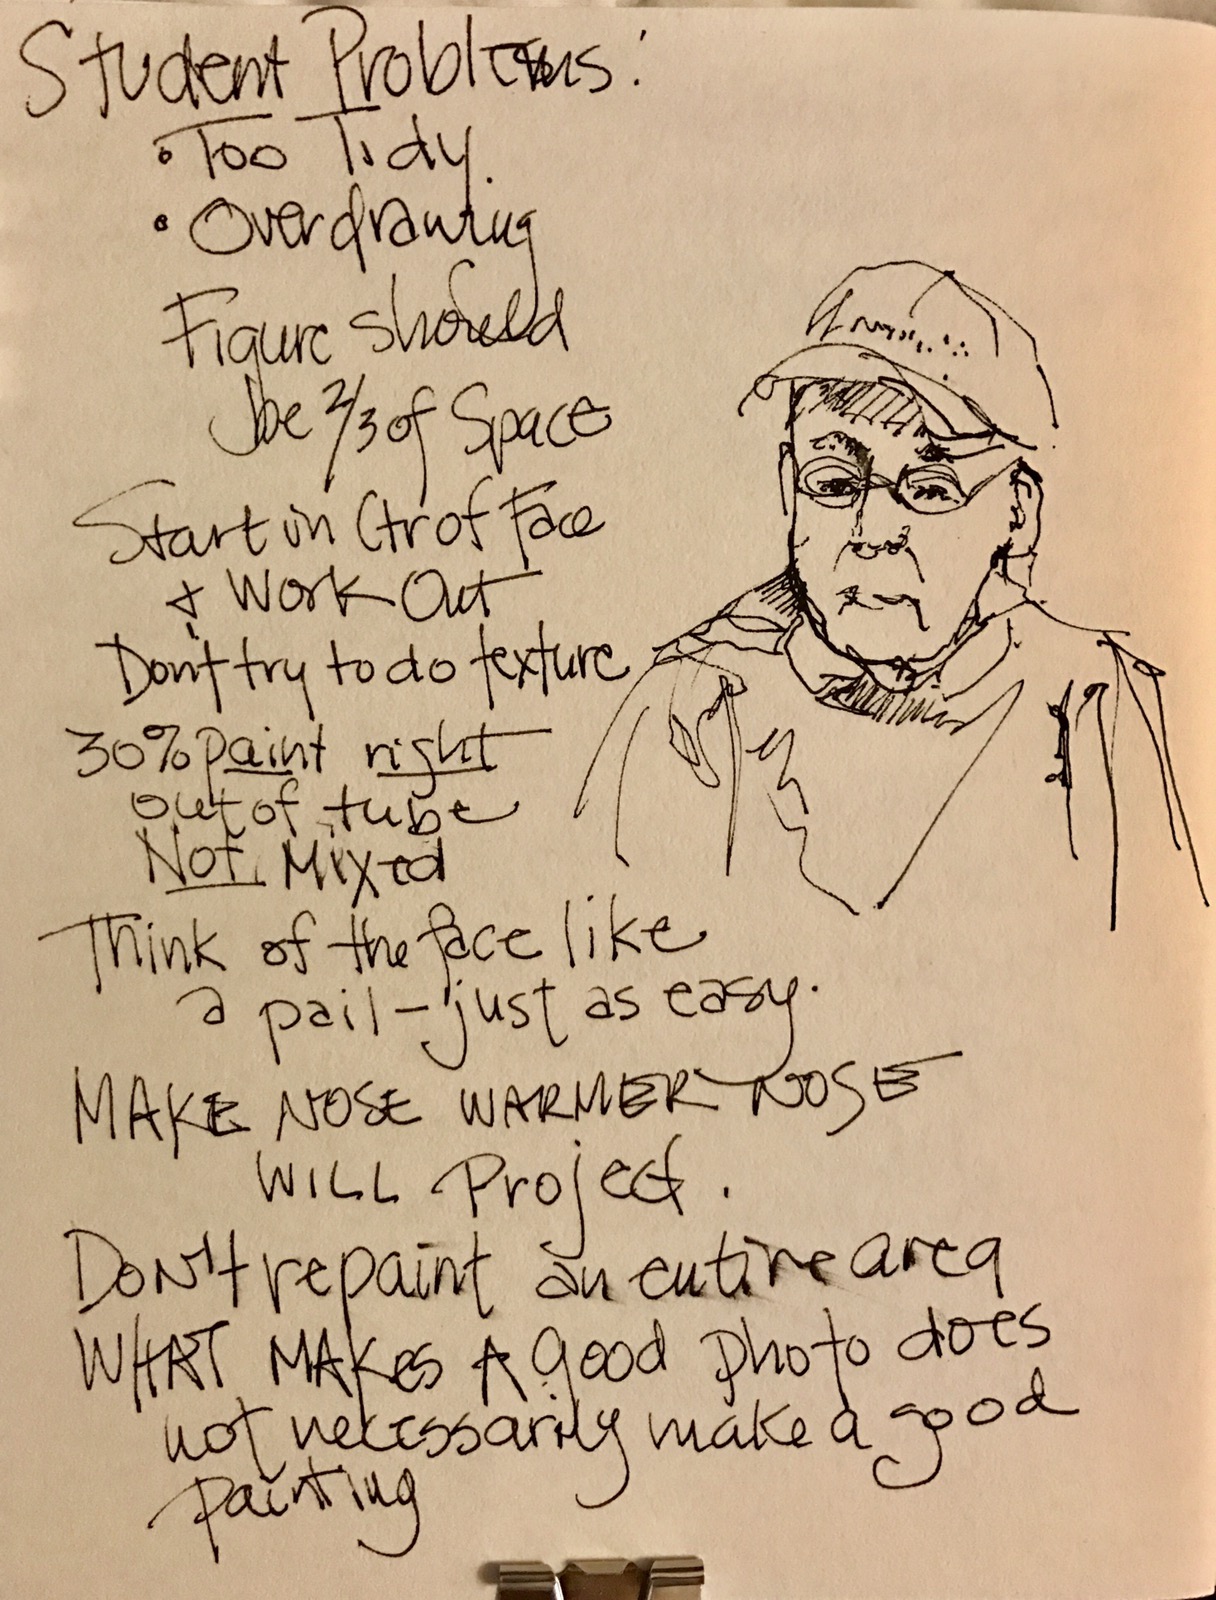 Student Problems:
• Too Tidy.
• Overdrawing
Figure should
be 2/3 of Space
Start in Ctr of Face
+ Work Out
Don't try to do texture
30% paint right
out of tube
Not Mixed
Think of the face like
a pail – just as easy.
MAKE NOSE WARMER NOSE
WILL Project.
DON't repaint an entire area
WHAT MAKes A good photo does
not necessarily make a good
painting